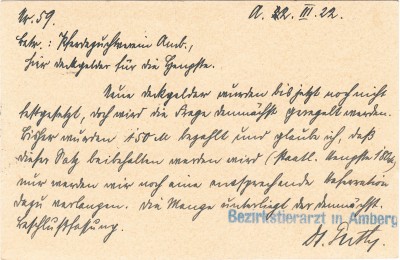 Nr. 59. A. 22. III. 22.
betr.: Pferdezuchtverein Amb.,
hier Deckgelder für die Hengste.
Neue Deckgelder wurden bis jetzt noch nicht
festgesetzt, doch wird die Frage demnächst geregelt werden.
Bisher wurden 150 M bezahlt und glaube ich, daß
dieser Satz beibehalten werden wird (Staatl. Hengste
nur werden wir noch eine entsprechende
dazu verlangen. Die Menge unterliegt der demnächst.
Beschlußfassung.
Bezirkstierarzt in Amberg
Dr.